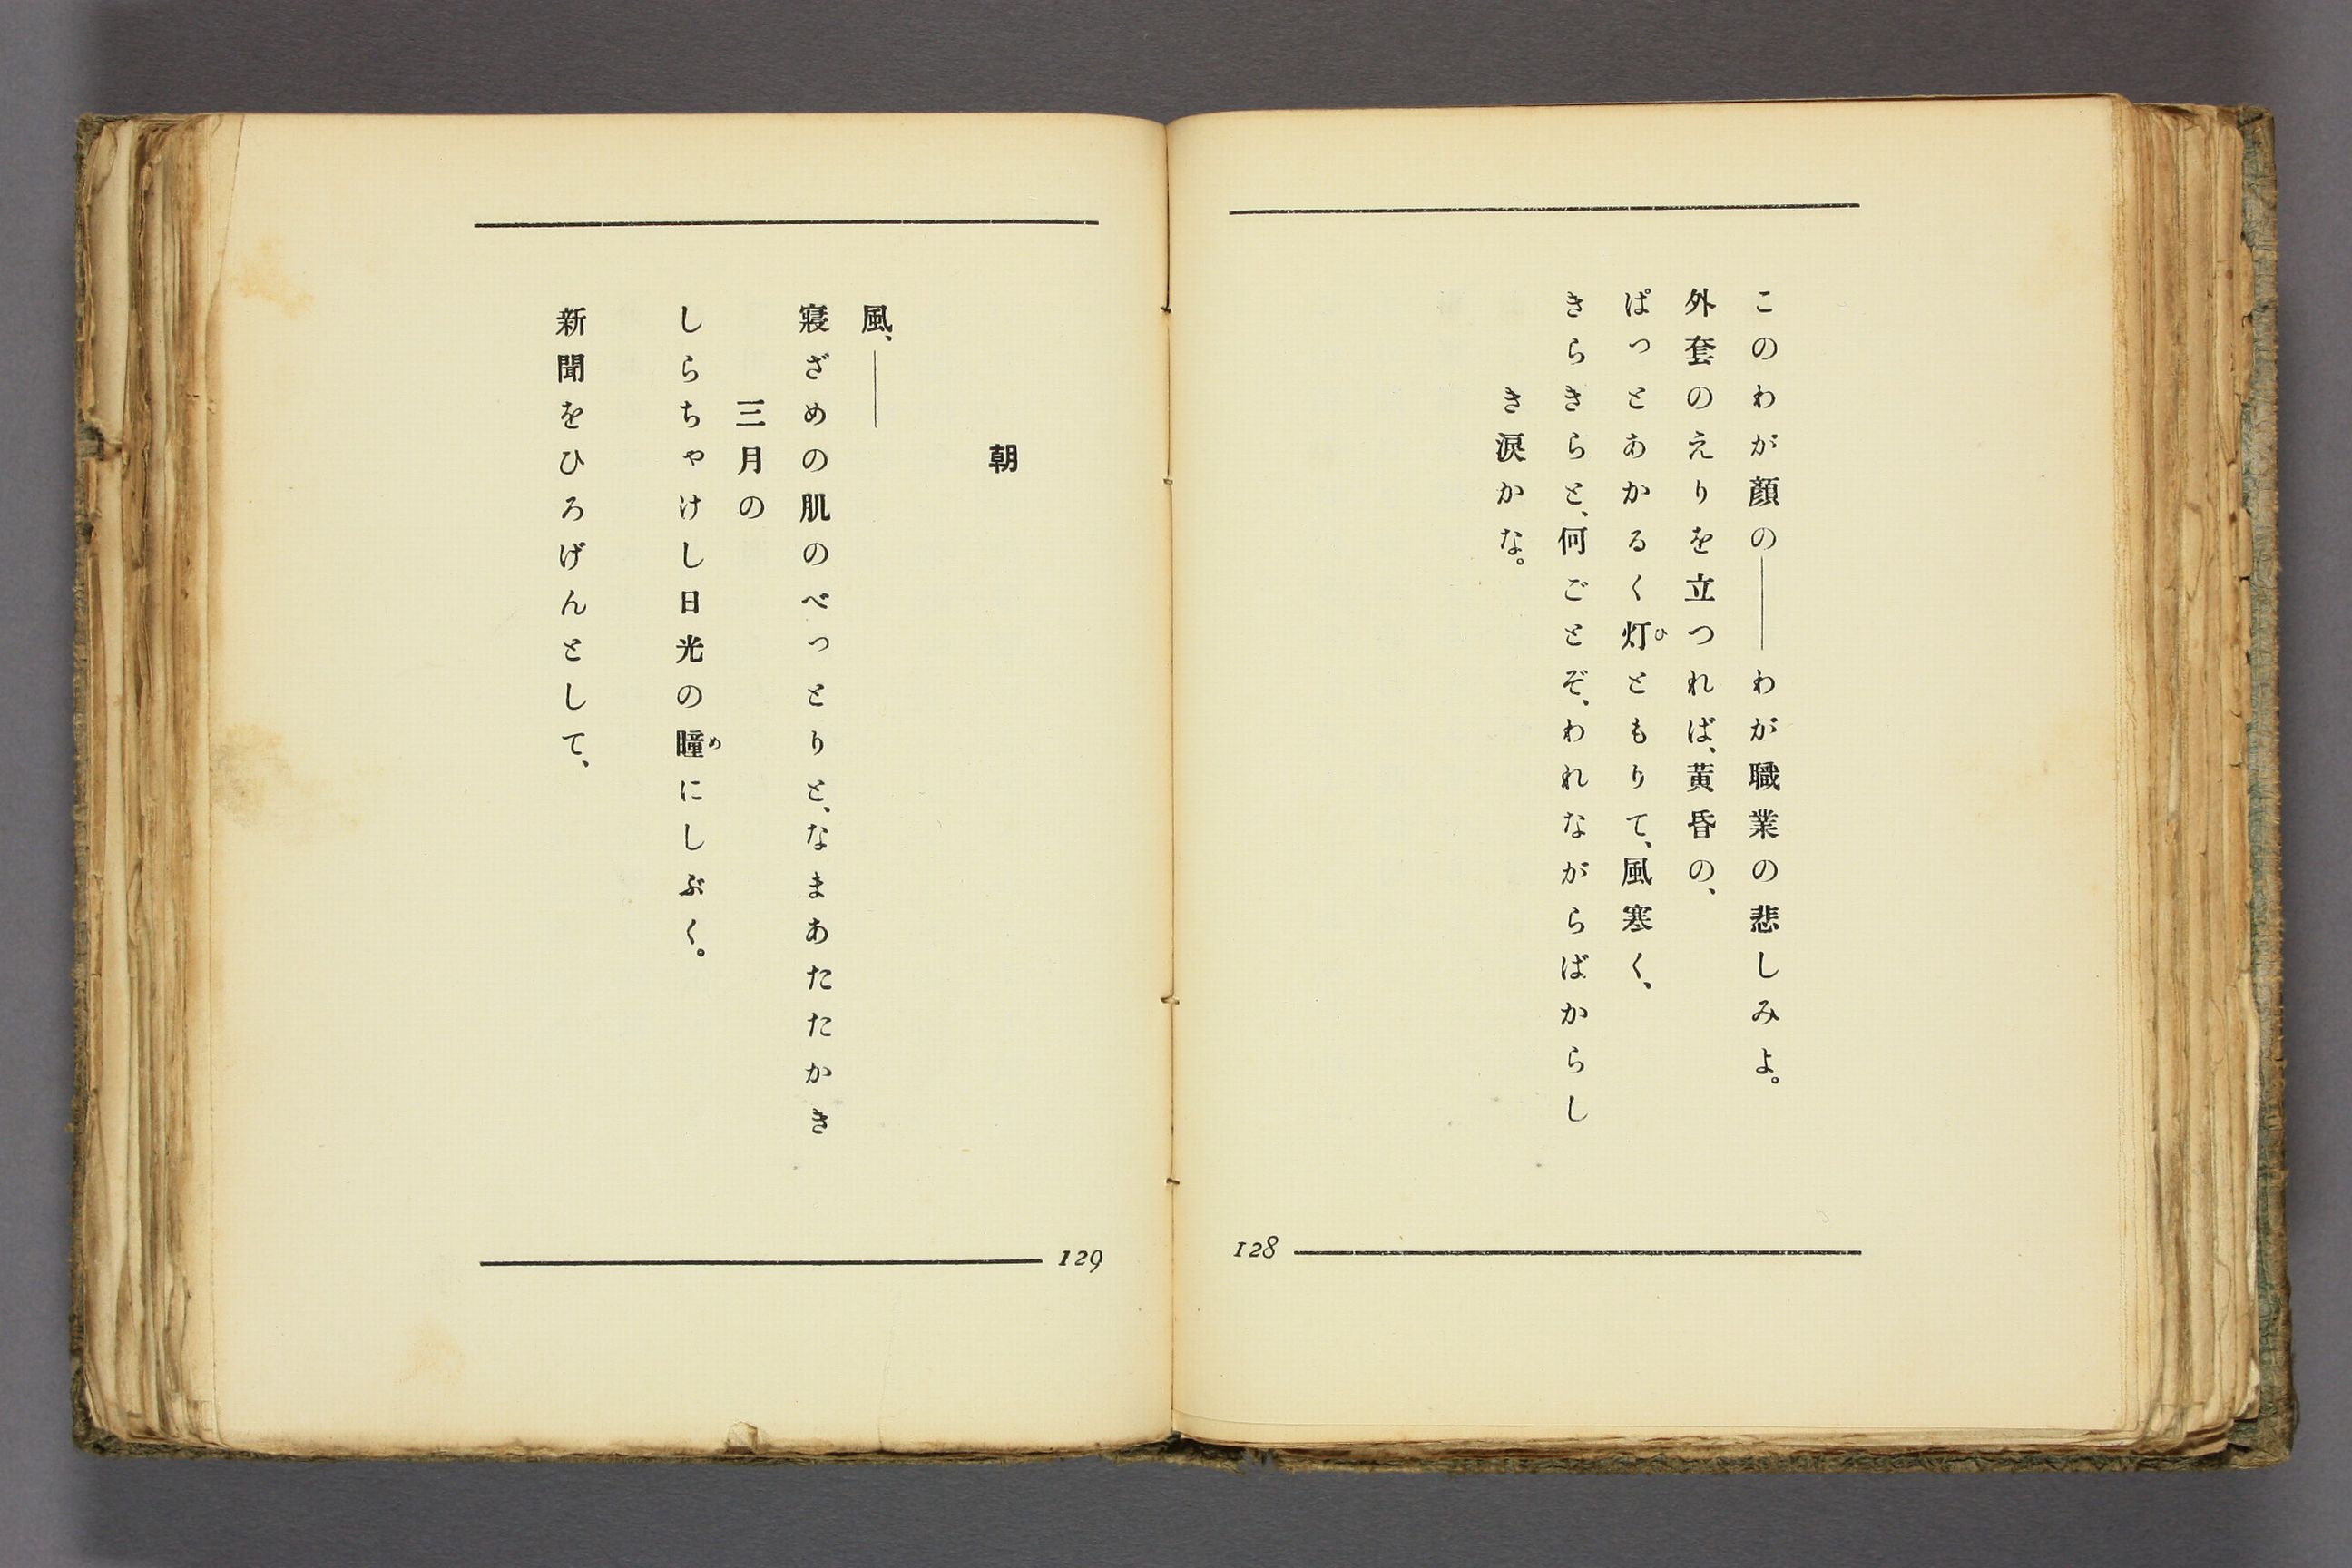 このわが顔の――わが職業の悲しみよ。
外套のえりを立つれば、黄昏の、
ぱっとあかるく灯ともりて、風寒く、
ひ
きらきらと、何ごとぞ、われながらばからし
き涙かな。
128
朝
風、――
寝ざめの肌のべっとりと、なまあたたかき
三月の
しらちゃけし日光の瞳にしぶく。
め
新聞をひろげんとして、
129